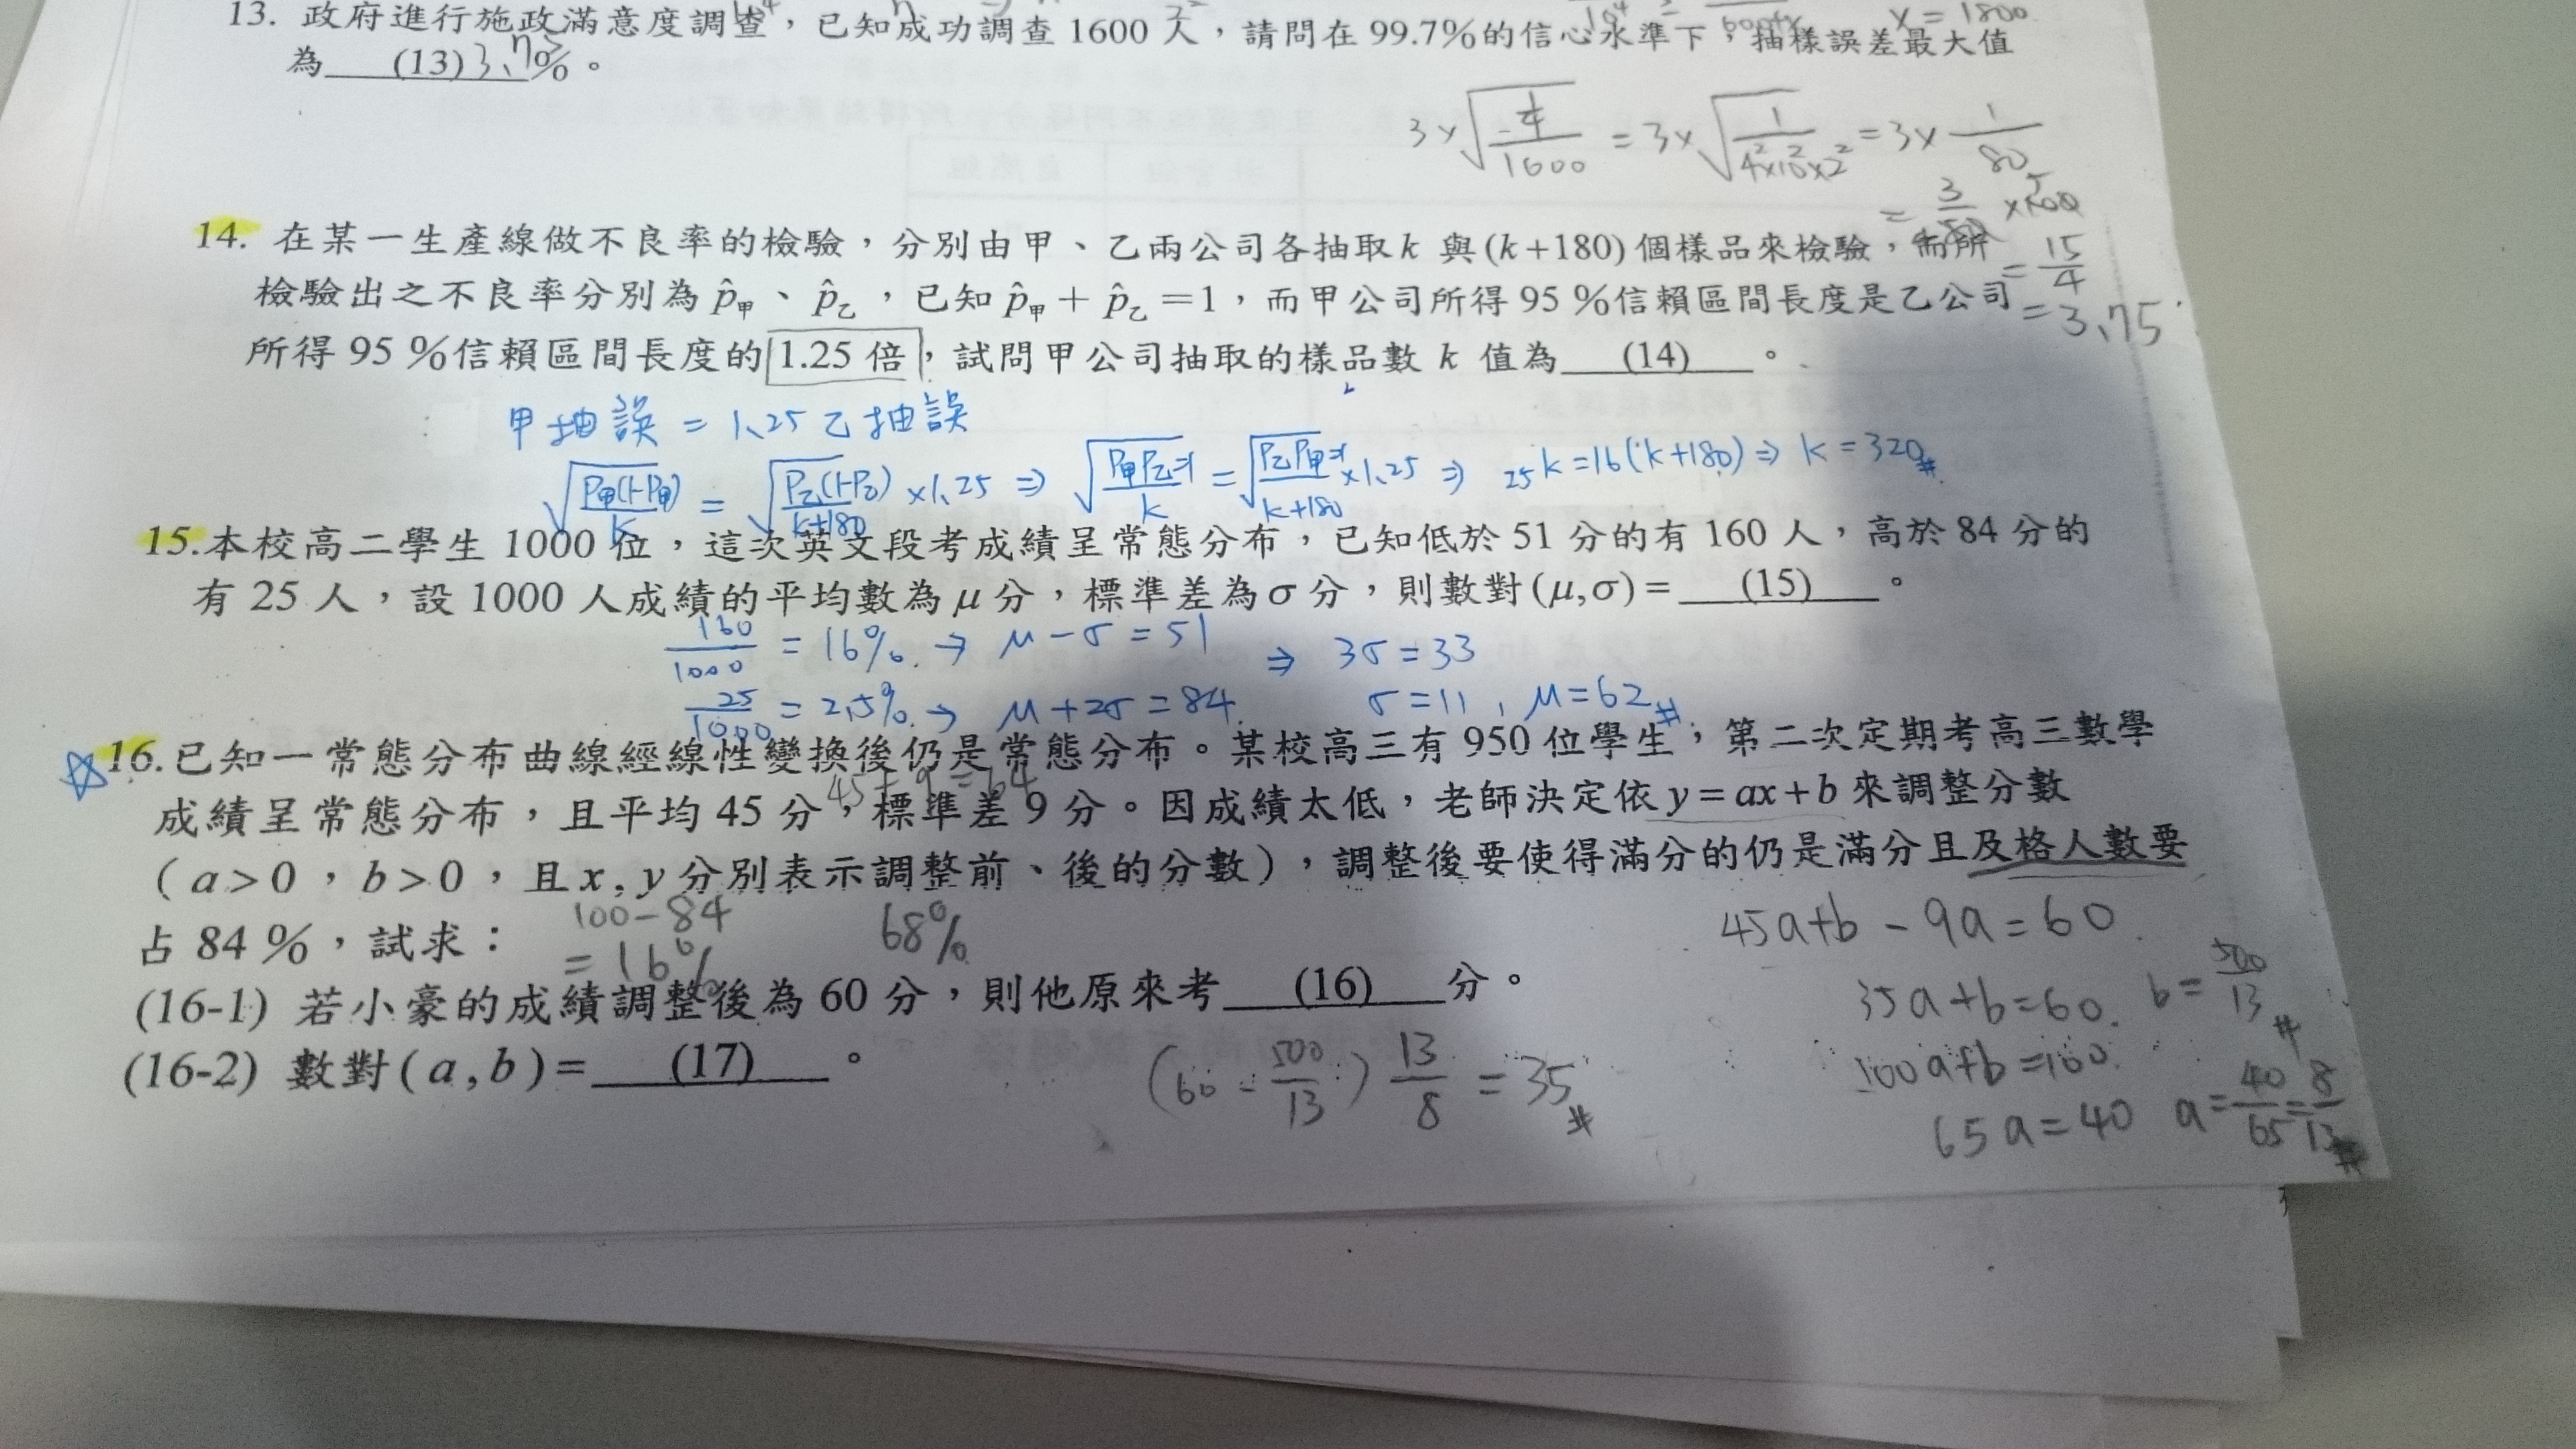 13. 政府進行施政滿意度調查，已知成功調查 1600 人，請問在 99.7%的信心水準下，抽樣誤差最大值
x = 1800
為 (13) 3.75% 。
3×√(1/4 / 1600) = 3×√(1 / 4²×10²×2²) = 3× 1/80
= 3/80 ×100
= 15/4
= 3.75
14. 在某一生產線做不良率的檢驗，分別由甲、乙兩公司各抽取 k 與(k+180) 個樣品來檢驗，而所
檢驗出之不良率分別為 p̂甲、 p̂乙 ，已知 p̂甲 + p̂乙 =1，而甲公司所得 95 %信賴區間長度是乙公司
所得 95 %信賴區間長度的 1.25 倍，試問甲公司抽取的樣品數 k 值為 (14) 。
甲抽誤 = 1.25 乙抽誤
√(P甲(1-P甲) / k) = √(P乙(1-P乙) / k+180) ×1.25 ⇒ √(P甲P乙 / k) = √(P乙P甲 / k+180) ×1.25 ⇒ 25k=16(k+180) ⇒ k=320#
15.本校高二學生 1000 位，這次英文段考成績呈常態分布，已知低於 51 分的有 160 人，高於 84 分的
有 25 人，設 1000 人成績的平均數為 μ 分，標準差為 σ 分，則數對 (μ,σ) = (15) 。
160/1000 = 16% → μ - σ = 51 ⇒ 3σ = 33
25/1000 = 2.5% → μ + 2σ = 84 σ = 11 , μ = 62#
☆16.已知一常態分布曲線經線性變換後仍是常態分布。某校高三有 950 位學生，第二次定期考高三數學
45 + 9 = 64
成績呈常態分布，且平均 45 分，標準差 9 分。因成績太低，老師決定依 y = ax + b 來調整分數
（ a > 0 ， b > 0 ，且 x, y 分別表示調整前、後的分數），調整後要使得滿分的仍是滿分且及格人數要
占 84 %，試求：
100-84
= 16%
68%
45a+b - 9a = 60
(16-1) 若小豪的成績調整後為 60 分，則他原來考 (16) 分。
35a + b = 60. b = 500/13 #
(16-2) 數對 ( a , b ) = (17) 。
(60 - 500/13) 13/8 = 35#
100a+b = 100
65a = 40 a = 40/65 = 8/13 #